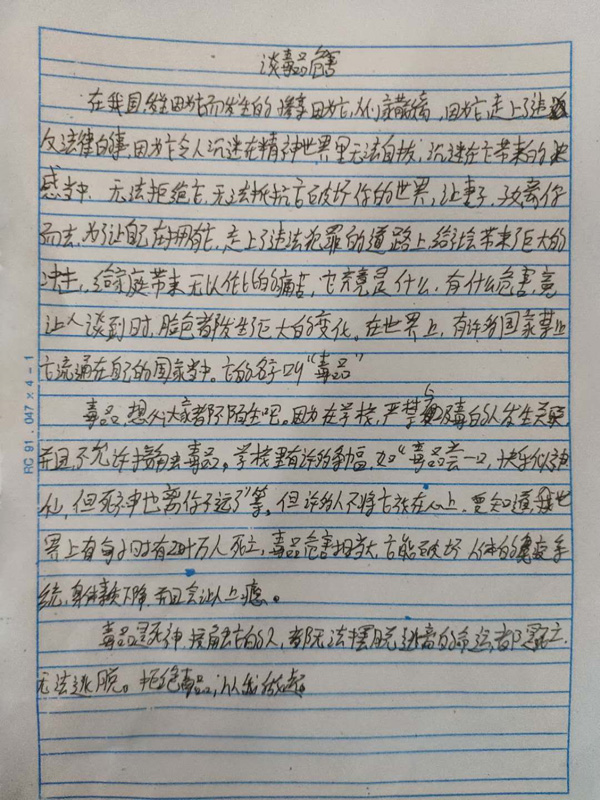 谈毒品危害
在我国,发生因为它而发生的惨事,因为它,人们家散,因为它,走上了违
反法律的事,因为它令人沉迷在精神世界里无法自拔,沉迷在它带来的快
感当中,无法拒绝它,无法抵抗它破坏你的世界,让妻子离你
而去,为了让自己在拥有它,走上了违法犯罪的道路上,给社会带来了巨大的
冲击,给家庭带来无以伦比的的痛苦,它究竟是什么,有什么危害,竟
让人谈到时,脸色都发生了巨大的变化。在世界上,有许多国家禁止
它流通在自己的国家当中。它的名字叫“毒品”
毒品,想必大家都不陌生吧。因为在学校,严禁与吸毒的人发生关联
并且不允许接触毒品。学校里有许多条幅,如“毒品尝一口,快乐似神
仙,但死神也离你不远了”等。但许多人不将它放在心上,要知道,我世
界上有每小时有20十万人死亡,毒品危害相当大,它能破坏人体的免疫系
统,身体素质下降,并且会让人上瘾。
毒品是死神,接触它的人,都无法摆脱逃亡的命运,都只是死亡,
无法逃脱。拒绝毒品,从我做起
RC 91 047×4-1